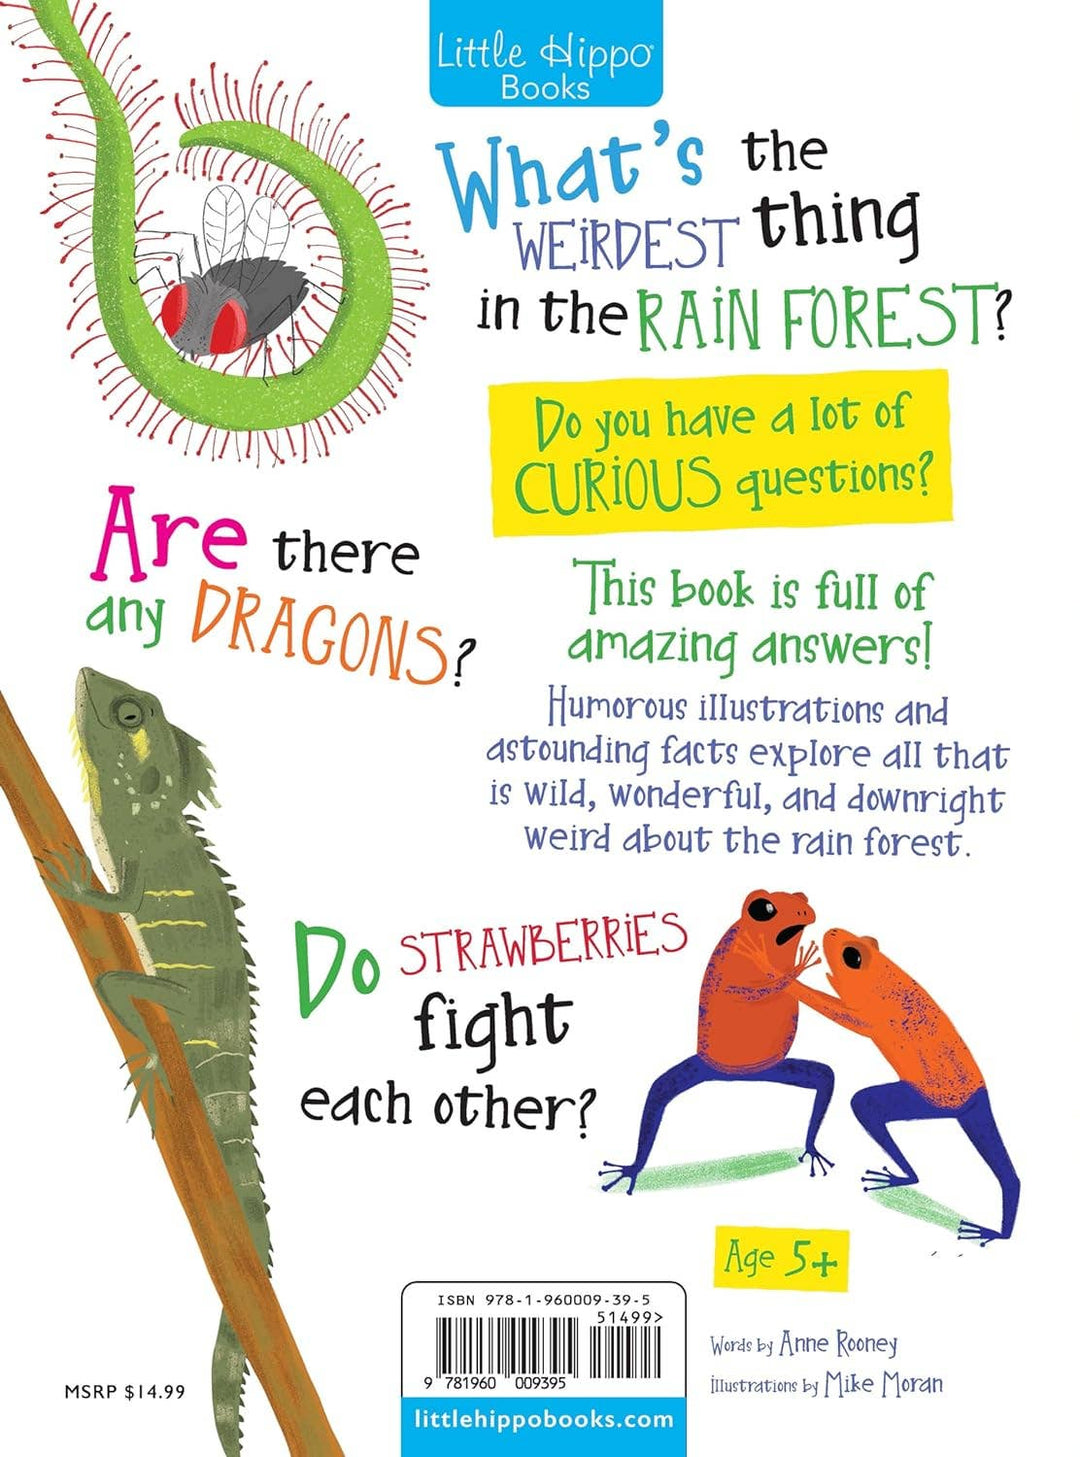 Little Hippo®
Books
What's the
WEIRDEST thing
in the RAIN FOREST?
Do you have a lot of
CURIOUS questions?
Are there
any DRAGONS?
This book is full of
amazing answers!
Humorous illustrations and
astounding facts explore all that
is wild, wonderful, and downright
weird about the rain forest.
Do STRAWBERRIES
fight
each other?
Age 5+
ISBN 978-1-960009-39-5
51499>
9 781960 009395
littlehippobooks.com
MSRP $14.99
Words by Anne Rooney
Illustrations by Mike Moran